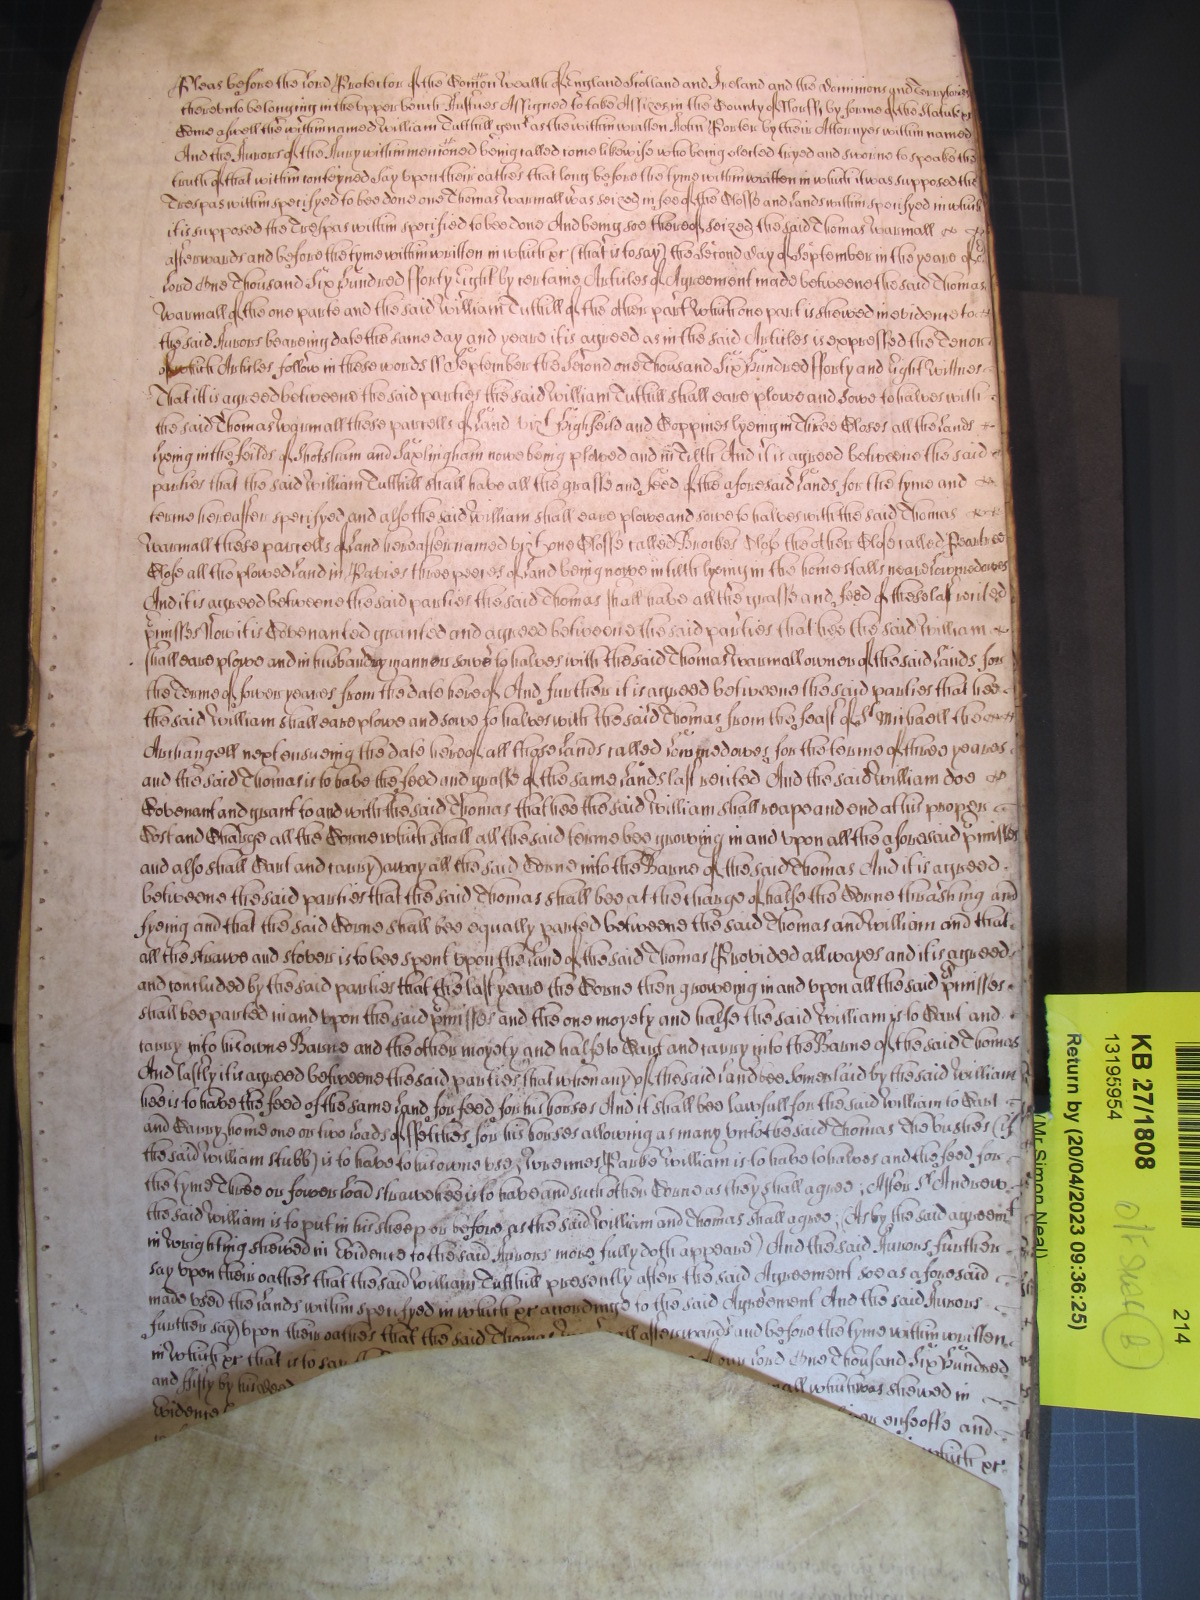 Pleas before the Lord Protector of the Comon wealth of England Scotland and Ireland and the dominions and terrytories
thereunto belonging in the upper bench Justices Assigned to take Assizes in the County of by forme of the Statute &c
Come aswell the within named William Tuthill gent as the within written John Porter by their Attornyes within named
And the Jurors of the Jury within mencioned being called come likewise who being elected tryed and sworne to speake the
truth of that within conteyned say upon their oathes that long before the tyme within written in which it was supposed the
Trespas within specifyed to bee done one Thomas warmall was seized in fee of the Closse and lands within specifyed in which
it is supposed the Trespas within specified to bee done And being soe thereof seized the said Thomas warmall
afterwards and before the tyme within written in which &c (that is to say) the second day of September in the yeare of o
Lord One Thousand Six Hundred fforty eight by certaine Articles of Agreement made betweene the said Thomas
warmall of the one parte and the said William Tuthill of the other part which one part is shewed in evidence to
the said Jurors beareing date the same day and yeare it is agreed as in the said Articles is expressed the Tenor
of which Articles follow in these words ss September the second one Thousand Six Hundred fforty and eight Witnes
That itt is agreed betweene the said parties the said William Tuthill shall eare plowe and sowe to halves with
the said Thomas warmall these parcells of Land vizt Highfeild and Coppines lyeing in Three Closes all the lands
lyeing in the feilds of Shotsham and Saxlingham nowe being plowed and in Tilth And it is agreed betweene the said
parties that the said William Tuthill shall have all the grasse and feed of the aforesaid lands for the tyme and
terme hereafter specifyed and also the said William shall eare plowe and sowe to halves with the said Thomas
warmall these parcells of Land hereafter named vizt one Closse called Brookes Close the other Close called Pearetree
Close all the plowed land in three peeces of Land being nowe in tilth lyeing in the home stalls neare lowmedowes
And it is agreed betweene the said parties the said Thomas shall have all the grasse and feed of these last recited
pmisses Now it is Covenanted granted and agreed betweene the said parties that hee the said William
shall eare plowe and in husbandry manner sowe to halves with the said Thomas warmall owner of the said lands for
the Terme of fower yeares from the date hereof And further it is agreed betweene the said parties that hee
the said William shall eare plowe and sowe to halves with the said Thomas from the feast of St Michaell the
Archangell next ensueing the date hereof all those lands called lowmedowes for the terme of three yeares
and the said Thomas is to have the feed and grasse of the same lands last recited And the said William doe
Covenant and grant to and with the said Thomas that hee the said William shall reape and end at his proper
Cost and Charge all the Corne which shall all the said terme bee growing in and upon all the aforesaid pmisses
and also shall Cart and carry away all the said Corne into the Barne of the said Thomas And it is agreed
betweene the said parties that the said Thomas shall bee at the charge of halfe the Corne thrashing and
fyeing and that the said Corne shall bee equally parted betweene the said Thomas and William and that
all the strawe and stover is to bee spent upon the land of the said Thomas Provided allwayes and it is agreed
and concluded by the said parties that the last yeare the Corne then groweing in and upon all the said pmisses
shall bee parted in and upon the said pmisses and the one moyety and halfe the said William is to Cart and
carry into his owne Barne and the other moyety and halfe to Cart and carry into the Barne of the said Thomas
And lastly it is agreed betweene the said parties that when any of the said land bee Somerlaid by the said William
hee is to have the feed of the same land for feed for his horses And it shall bee lawfull for the said William to Cart
and Carry home one or two loads of ffetches for his horses allowing as many unto the said Thomas The bushes (if
the said William stubb) is to have to his owne use William is to have to halves and the feed for
the tyme Three or fower load strawe hee is to have and such other Corne as they shall agree; After St Andrew
the said William is to put in his sheep or before as the said William and Thomas shall agree; (As by the said agreemt
in wrighting shewed in Evidence to the said Jurors more fully doth appeare) And the said Jurors further
say upon their oathes that the said William Tuthill presently after the said Agreement soe as aforesaid
made used the lands within specifyed in which &c according to the said Agreement And the said Jurors
further say upon their oathes that the said Thomas afterwards and before the tyme within written
in which &c that is to say our Lord One Thousand Six Hundred
and fifty by his deed which was shewed in
Evidence enfeoffe and
which &c
KB 27/1808
13195954
Return by (20/04/2023 09:36:25)
(Mr Simon Neal)
214
B